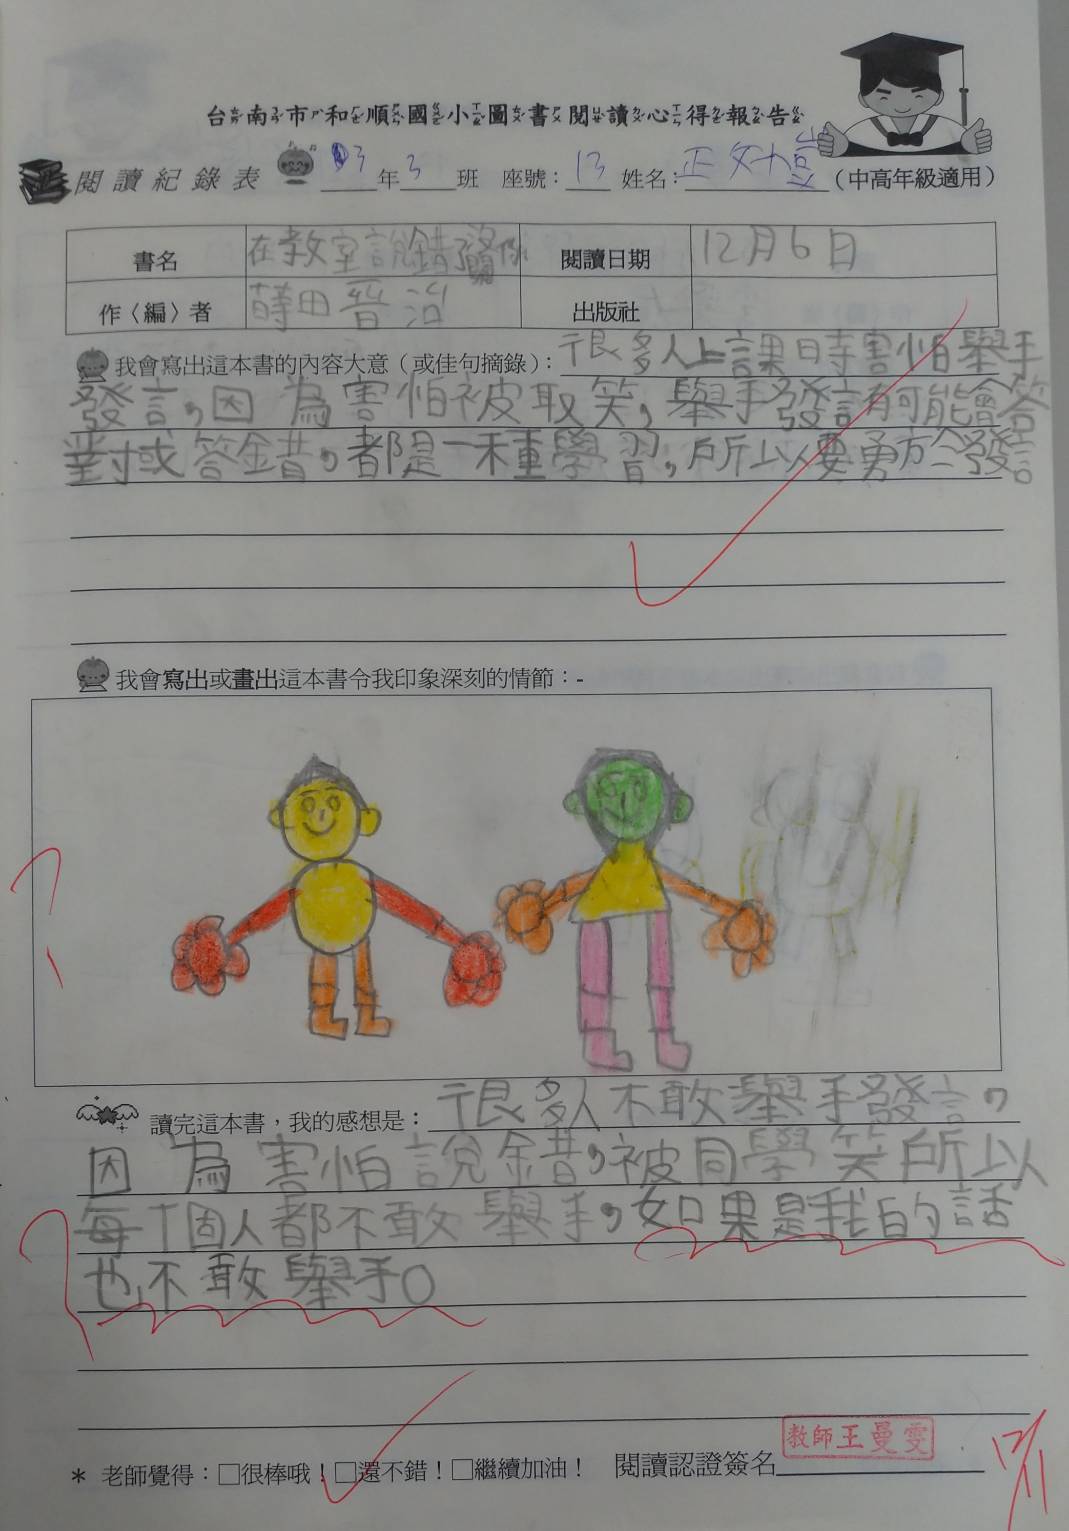 台南市和順國小圖書閱讀心得報告
閱讀紀錄表 3年3班 座號：13 姓名：（中高年級適用）
書名 在教室說錯了沒 閱讀日期 12月6日
作〈編〉者 蒔田晉治 出版社
我會寫出這本書的內容大意（或佳句摘錄）：很多人上課時害怕舉手
發言，因為害怕被取笑，舉手發言有可能會答
對或答錯，都是一種學習，所以要勇於發言
我會寫出或畫出這本書令我印象深刻的情節：-
讀完這本書，我的感想是：很多人不敢舉手發言，
因為害怕說錯，被同學笑所以
每個人都不敢舉手，如果是我的話
也不敢舉手。
* 老師覺得：□很棒哦！□還不錯！□繼續加油！ 閱讀認證簽名 教師王曼雯